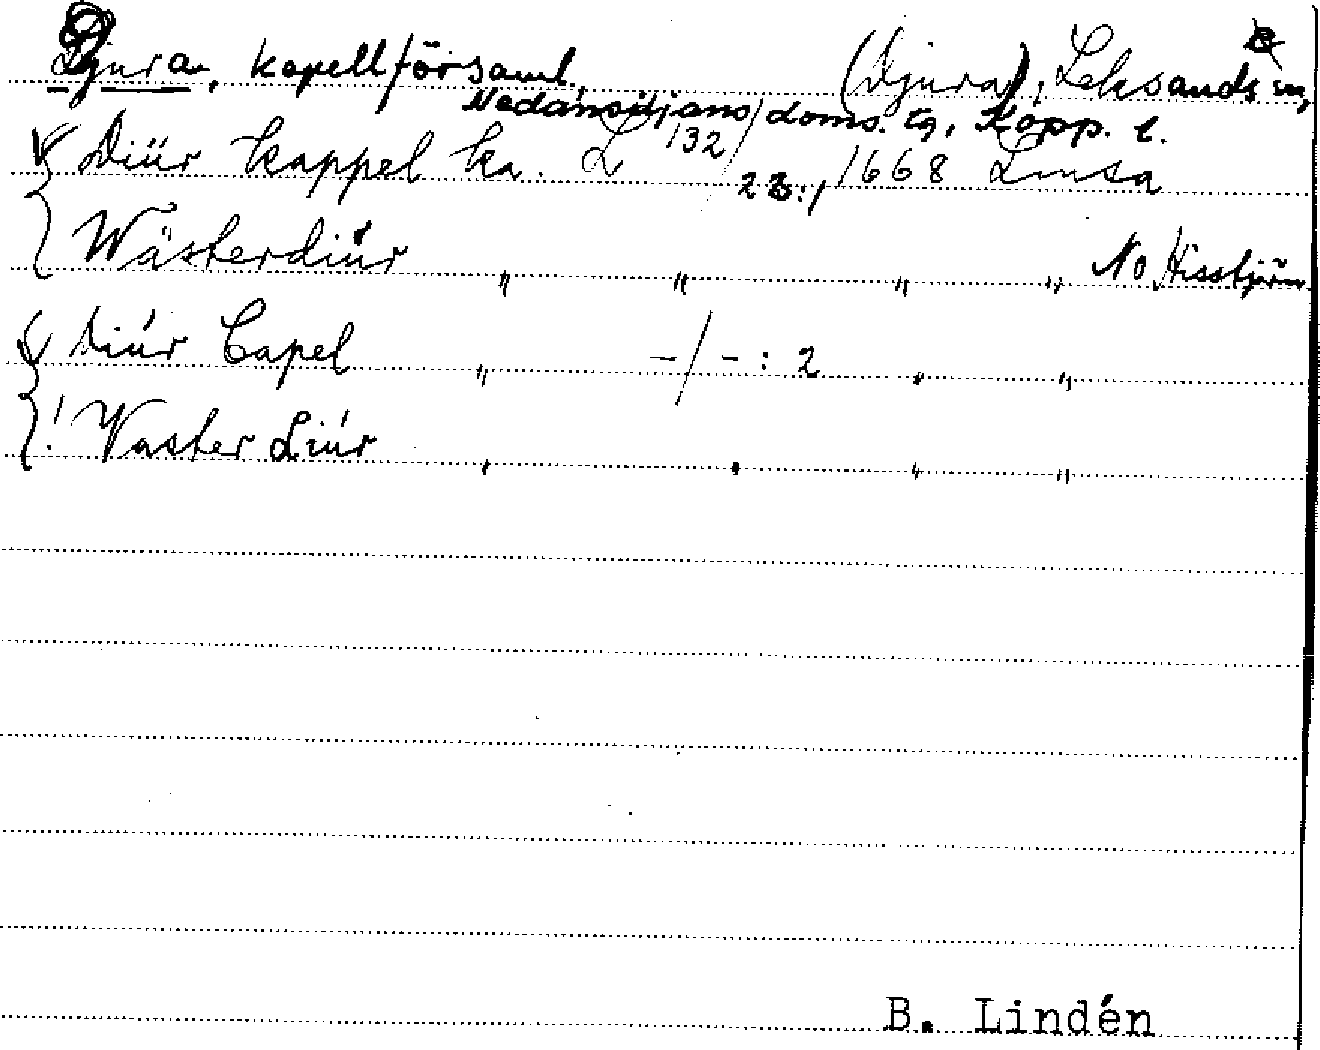 Djura, kapellförsaml. (Djura), Leksands sn,
Nedansiljans doms. tg, Kopp. l.
Diür kappel ka. L 132/23:1 1668 Lmsa
Wästerdiúr " " " " No Hisstjärn
Diúr Capel " -/-: 2 " "
! Vaster Diúr " " " "
B. Lindén